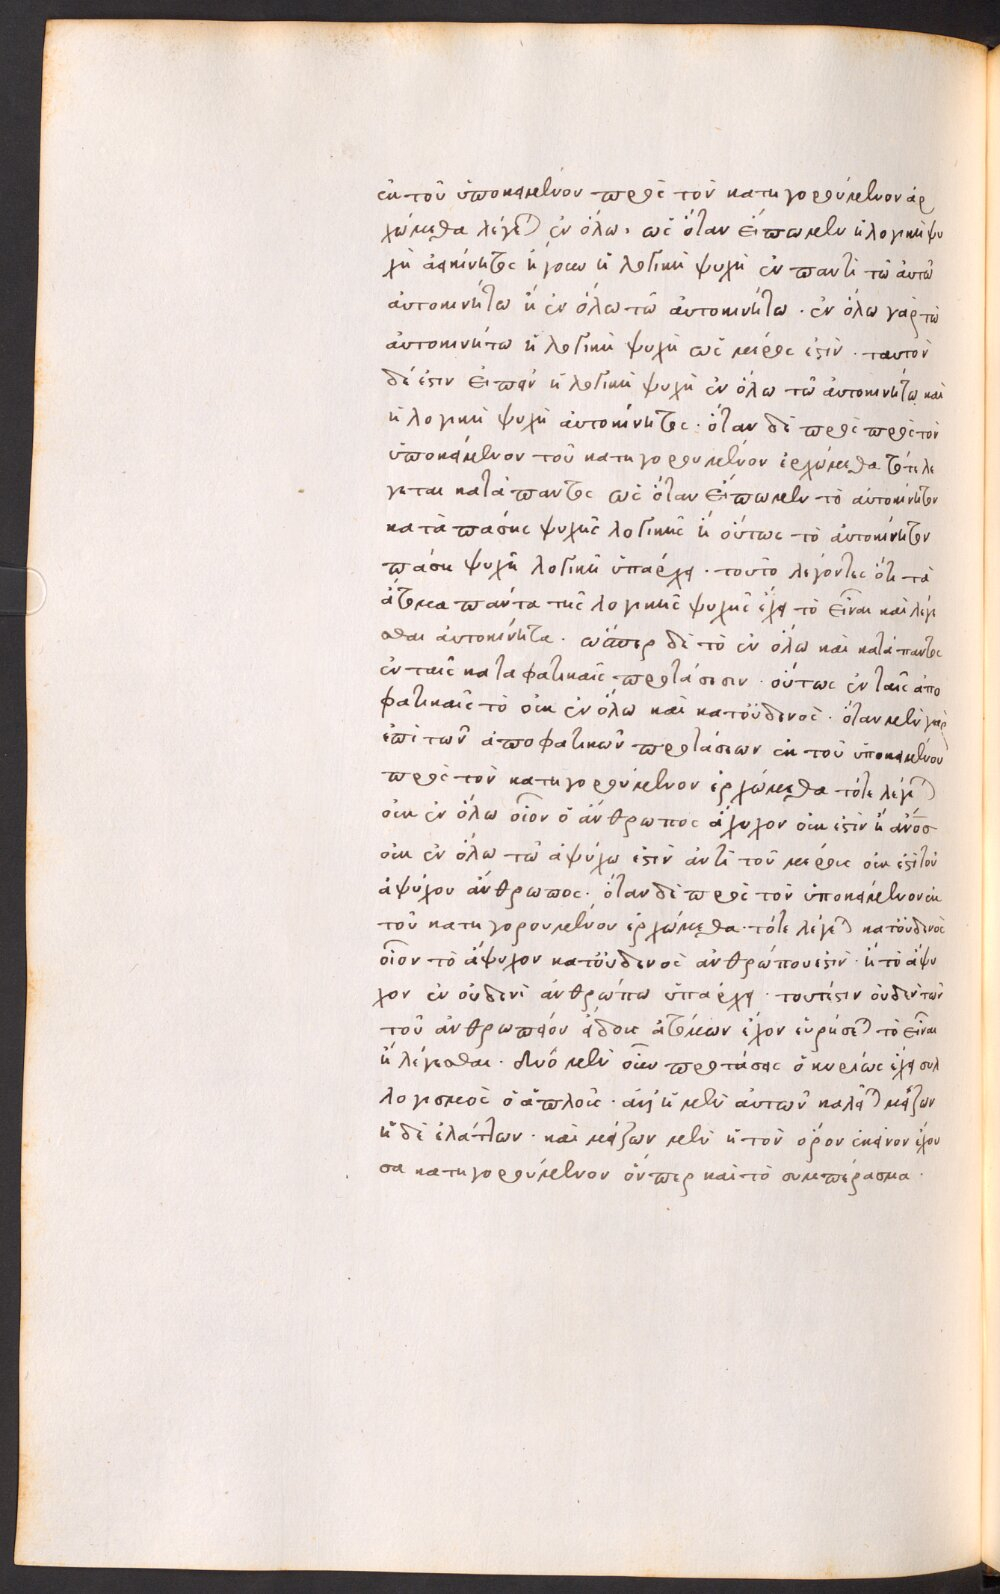 ἐκ τοῦ ὑποκειμένου πρὸς τὸν κατηγορούμενον ἀρ
χώμεθα λέγεται ἐν ὅλω, ὡς ὅταν εἴπωμεν ἡ λογικὴ ψυ
χὴ ἀεικίνητος ἤγουν ἡ λογικὴ ψυχὴ ἐν παντὶ τῶ αὐτῶ
αὐτοκινήτω ἢ ἐν ὅλω τῶ αὐτοκινήτω · ἐν ὅλω γὰρ τῶ
αὐτοκινήτω ἡ λογικὴ ψυχὴ ὡς μέρος ἐστὶν · ταυτὸν
δέ ἐστιν εἰπεῖν ἡ λογικὴ ψυχὴ ἐν ὅλω τῶ αὐτοκινήτω καὶ
ἡ λογικὴ ψυχὴ αὐτοκίνητος · ὅταν δὲ πρὸς πρὸς τὸν
ὑποκείμενον τοῦ κατηγορουμένου ἐρχώμεθα τότε λέ
γεται κατὰ παντὸς ὡς ὅταν εἴπωμεν τὸ αὐτοκίνητον
κατὰ πάσης ψυχῆς λογικῆς ἢ οὕτως τὸ αὐτοκίνητον
πάση ψυχῆ λογικῆ ὑπάρχει · τοῦτο λέγοντες ὅτι τὰ
ἄτομα πάντα τῆς λογικῆς ψυχῆς ἔχει τὸ εἶναι καὶ λέγε
σθαι αὐτοκίνητα · ὥσπερ δὲ τὸ ἐν ὅλω καὶ κατὰ παντὸς
ἐν ταῖς καταφατικαῖς προτάσεσιν · οὕτως ἐν ταῖς ἀπο
φατικαῖς τὸ οὐκ ἐν ὅλω καὶ κατ' οὐδενὸς · ὅταν μὲν γὰρ
ἐπὶ τῶν ἀποφατικῶν προτάσεων ἐκ τοῦ ὑποκειμένου
πρὸς τὸν κατηγορούμενον ἐρχώμεθα τότε λέγεται
οὐκ ἐν ὅλω οἷον ὁ ἄνθρωπος ἄψυχον οὐκ ἐστὶν ἢ ἄνος
οὐκ ἐν ὅλω τῶ ἀψύχω ἐστὶν ἀντὶ τοῦ μέρος οὐκ ἔστι τοῦ
ἀψύχου ἄνθρωπος · ὅταν δὲ πρὸς τὸν ὑποκείμενον ἐκ
τοῦ κατηγορουμένου ἐρχώμεθα · τότε λέγεται κατ' οὐδενὸς
οἷον τὸ ἄψυχον κατ' οὐδενὸς ἀνθρώπου ἐστὶν · ἢ τὸ ἄψυ
χον ἐν οὐδενὶ ἀνθρώπω ὑπάρχει · τουτέστιν οὐδὲν τῶν
τοῦ ἀνθρωπείου εἴδους ἀτόμων ἔχον εὑρήσεται τὸ εἶναι
ἢ λέγεσθαι · δύο μὲν οὖν προτάσεις ὁ κυρίως ἔχει συλ
λογισμὸς ὁ ἁπλοῦς · ἀλλ' ἡ μὲν αὐτῶν καλεῖται μείζων
ἡ δὲ ἐλάττων · καὶ μείζων μὲν ἡ τὸν ὅρον ἐκεῖνον ἔχου
σα κατηγορούμενον ὅνπερ καὶ τὸ συμπέρασμα ·